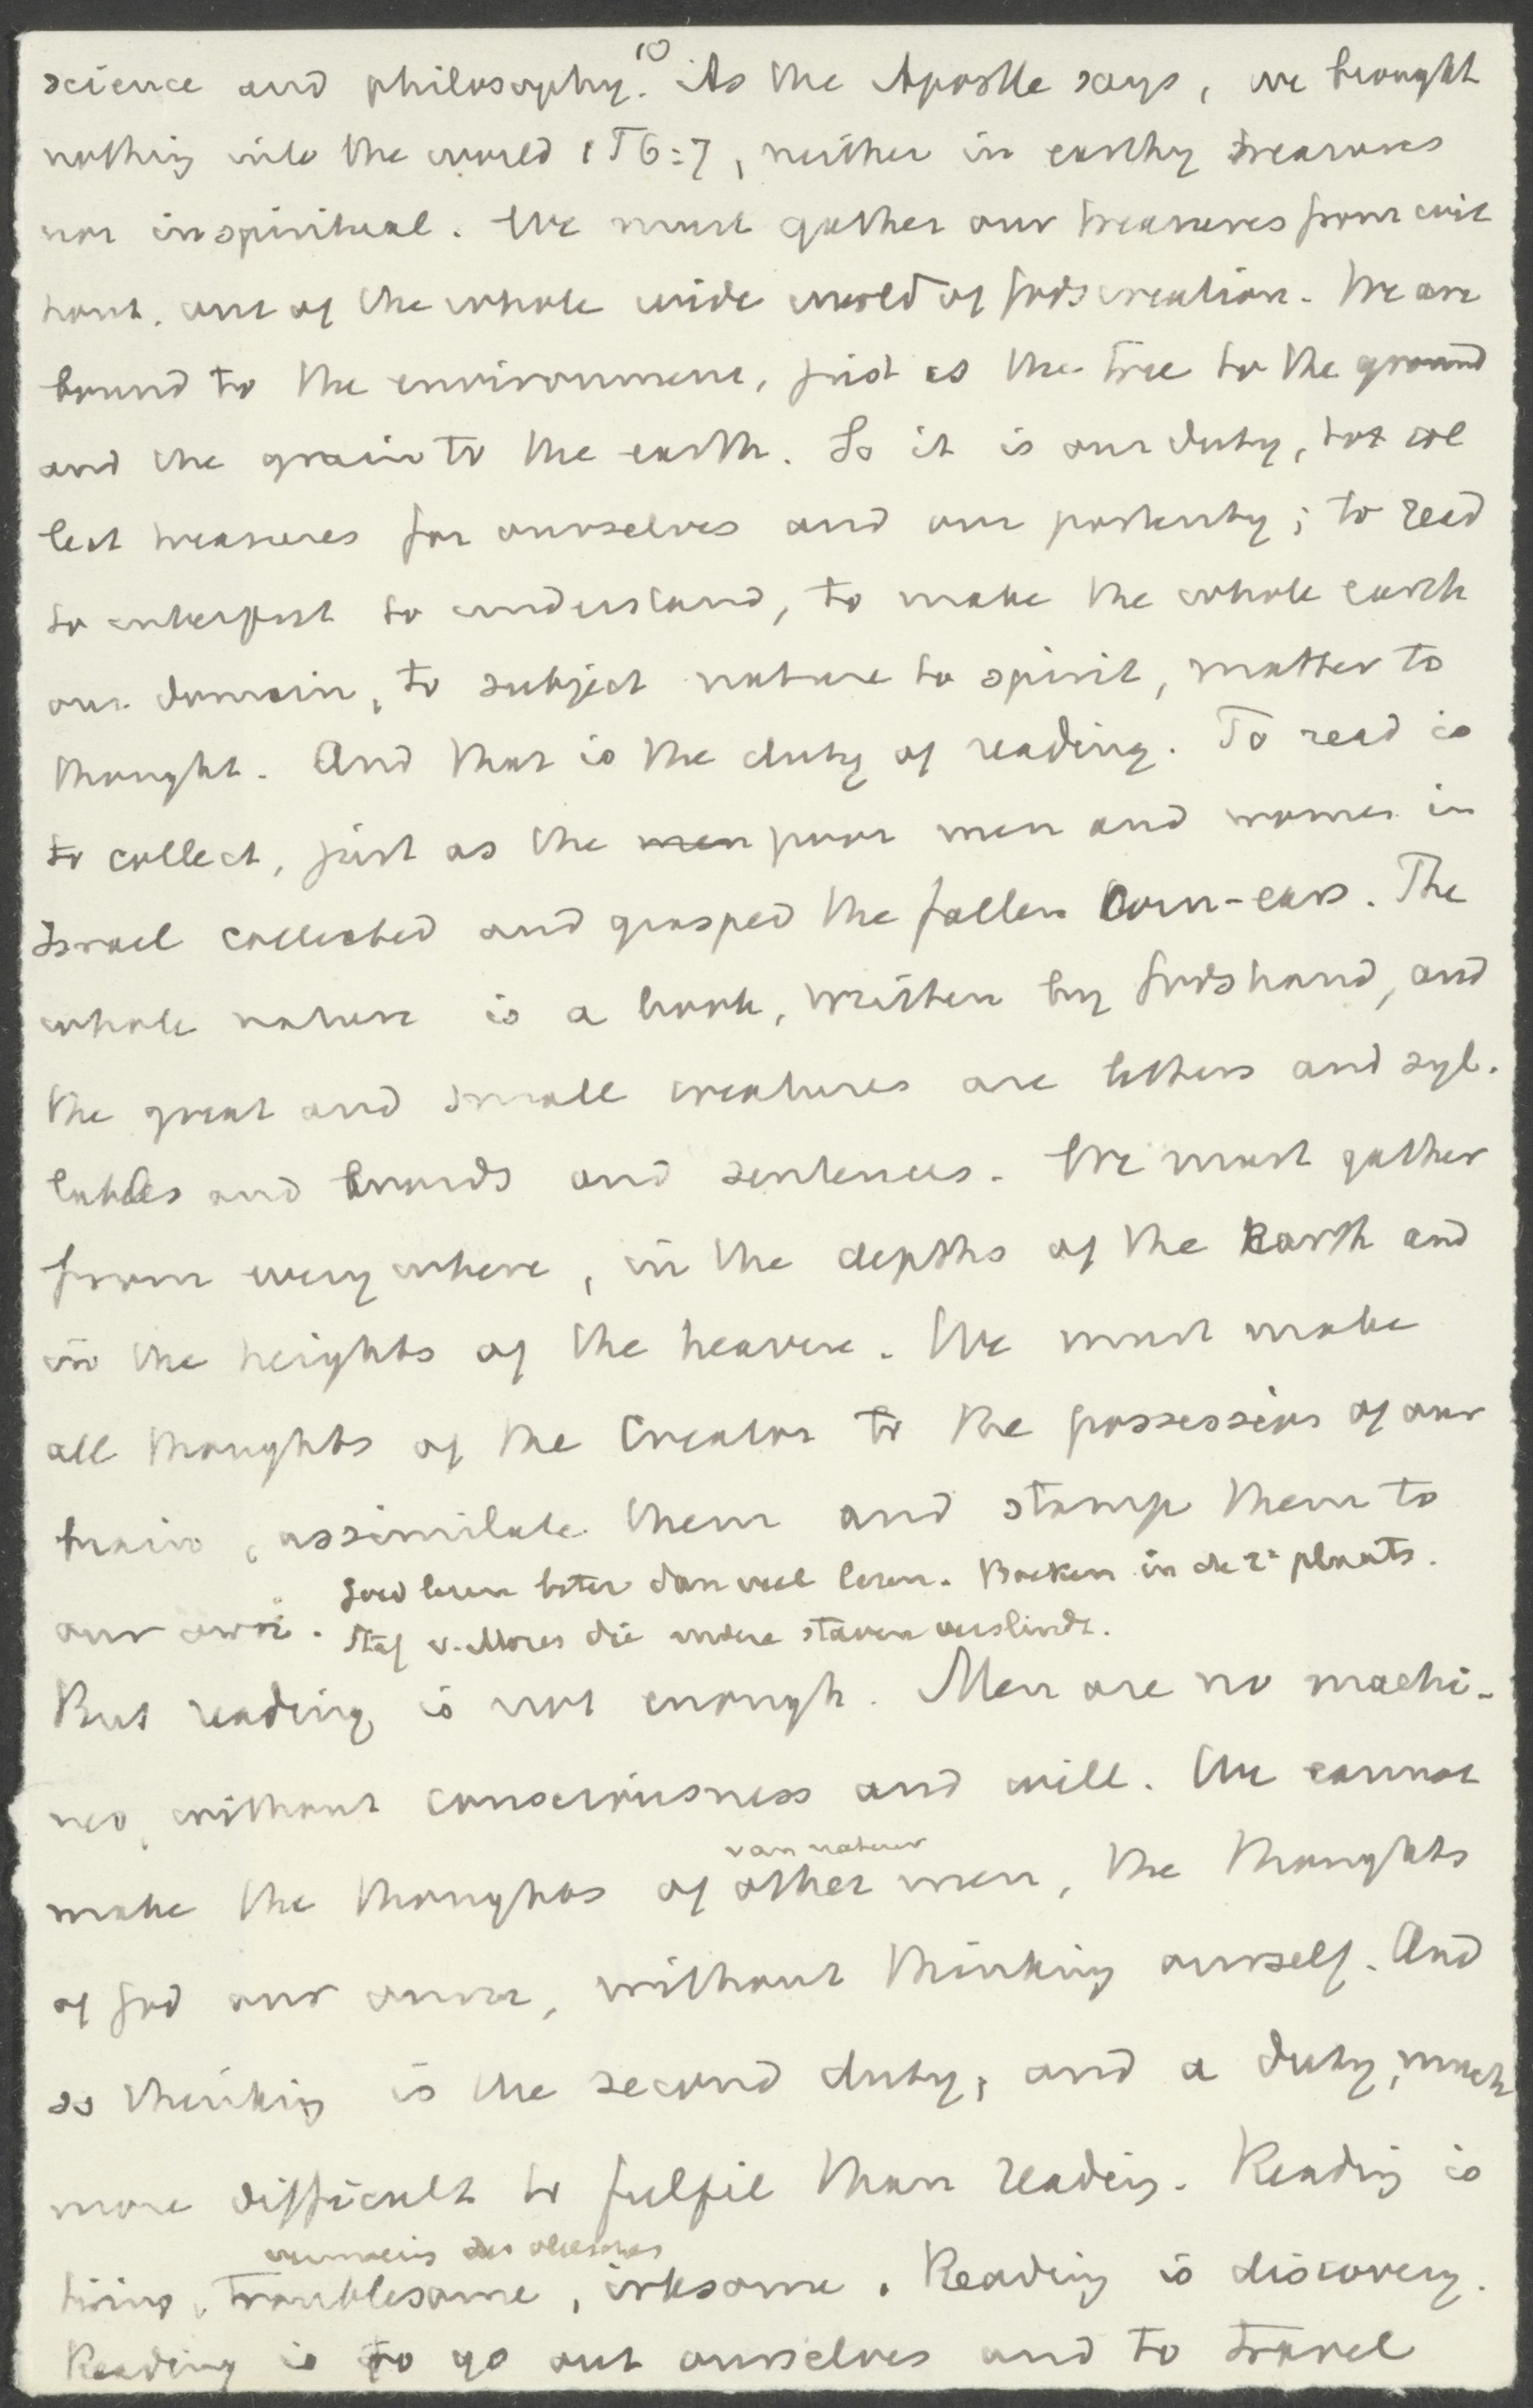 10
science and philosophy. As the Apostle says, we brought
nothing into the world 1 T 6:7, neither in earthy treasures
nor in spiritual. We must gather our treasures from wit
hout, out of the whole wide world of Gods creation. We are
bound to the environment, just as the tree to the ground
and the grain to the earth. So it is our duty, to col
lect treasures for ourselves and our posterity; to read
to interpret to understand, to make the whole earth
our domain, to subject nature to spirit, matter to
thought. And that is the duty of reading. To read is
to collect, just as the men poor men and women in
Israel collected and grasped the fallen Corn-ears. The
whole nature is a book, written by Gods hand, and
the great and small creatures are letters and syl-
lables and words and sentences. We must gather
from every where, in the depths of the Earth and
in the heights of the heaven. We must make
all thoughts of the Creator to the possession of our
brain, assimilate them and stamp them to
Goed lezen beter dan veel lezen. Boeken in de 2e plaats.
our own. Staf v. Mozes die andere staven verslindt.
But reading is not enough. Men are no machi-
nes, without consciousness and will. We cannot
van natuur
make the thoughts of other men, the thoughts
of God our own, without thinking ourself. And
so thinking is the second duty, and a duty, much
more difficult to fulfil than reading. Reading is
tiring, troublesome, irksome. Reading is discovery.
Reading is to go out ourselves and to travel